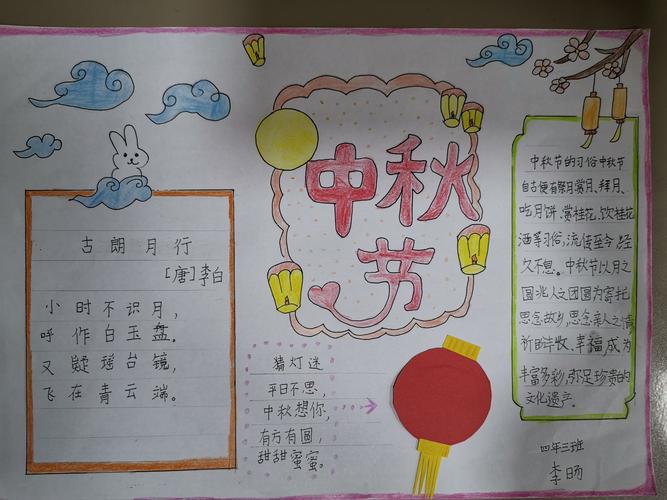 中秋
节
古朗月行
[唐]李白
小时不识月，
呼作白玉盘。
又疑瑶台镜，
飞在青云端。
猜灯迷
平日不思，
中秋想你，
有方有圆，
甜甜蜜蜜。
中秋节的习俗中秋节
自古便有祭月、赏月、拜月、
吃月饼、赏桂花、饮桂花
酒等习俗，流传至今，经
久不息。中秋节以月之
圆兆人之团圆为寄托
思念故乡，思念亲人之情
祈盼丰收、幸福，成为
丰富多彩，弥足珍贵的
文化遗产。
四年三班
李旸